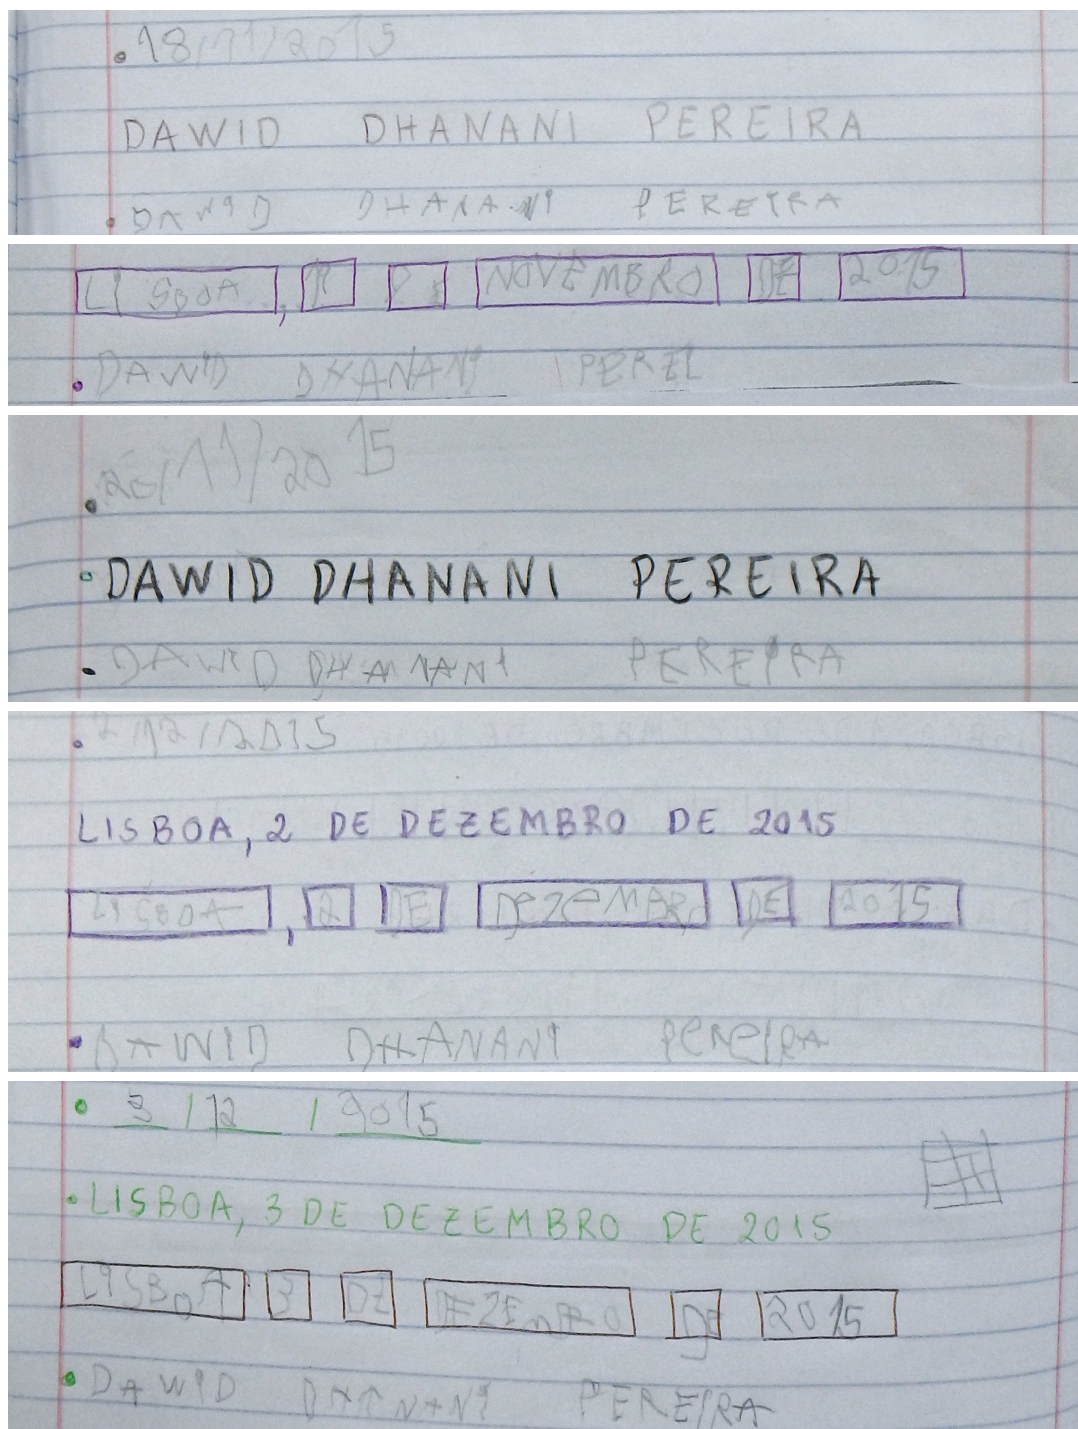 18/11/2015
DAWID DHANANI PEREIRA
DAWID DHANANI PEREIRA
LISBOA, NOVEMBRO DE 2015
DAWID DHANANI PEREI
20/11/2015
DAWID DHANANI PEREIRA
DAWID DHANANI PEREIRA
2/12/2015
LISBOA, 2 DE DEZEMBRO DE 2015
LISBOA, 2 DE DEZEMBRO DE 2015
DAWID DHANANI PEREIRA
3/12/2015
LISBOA, 3 DE DEZEMBRO DE 2015
LISBOA 3 DE DEZEMBRO DE 2015
DAWID DHANANI PEREIRA